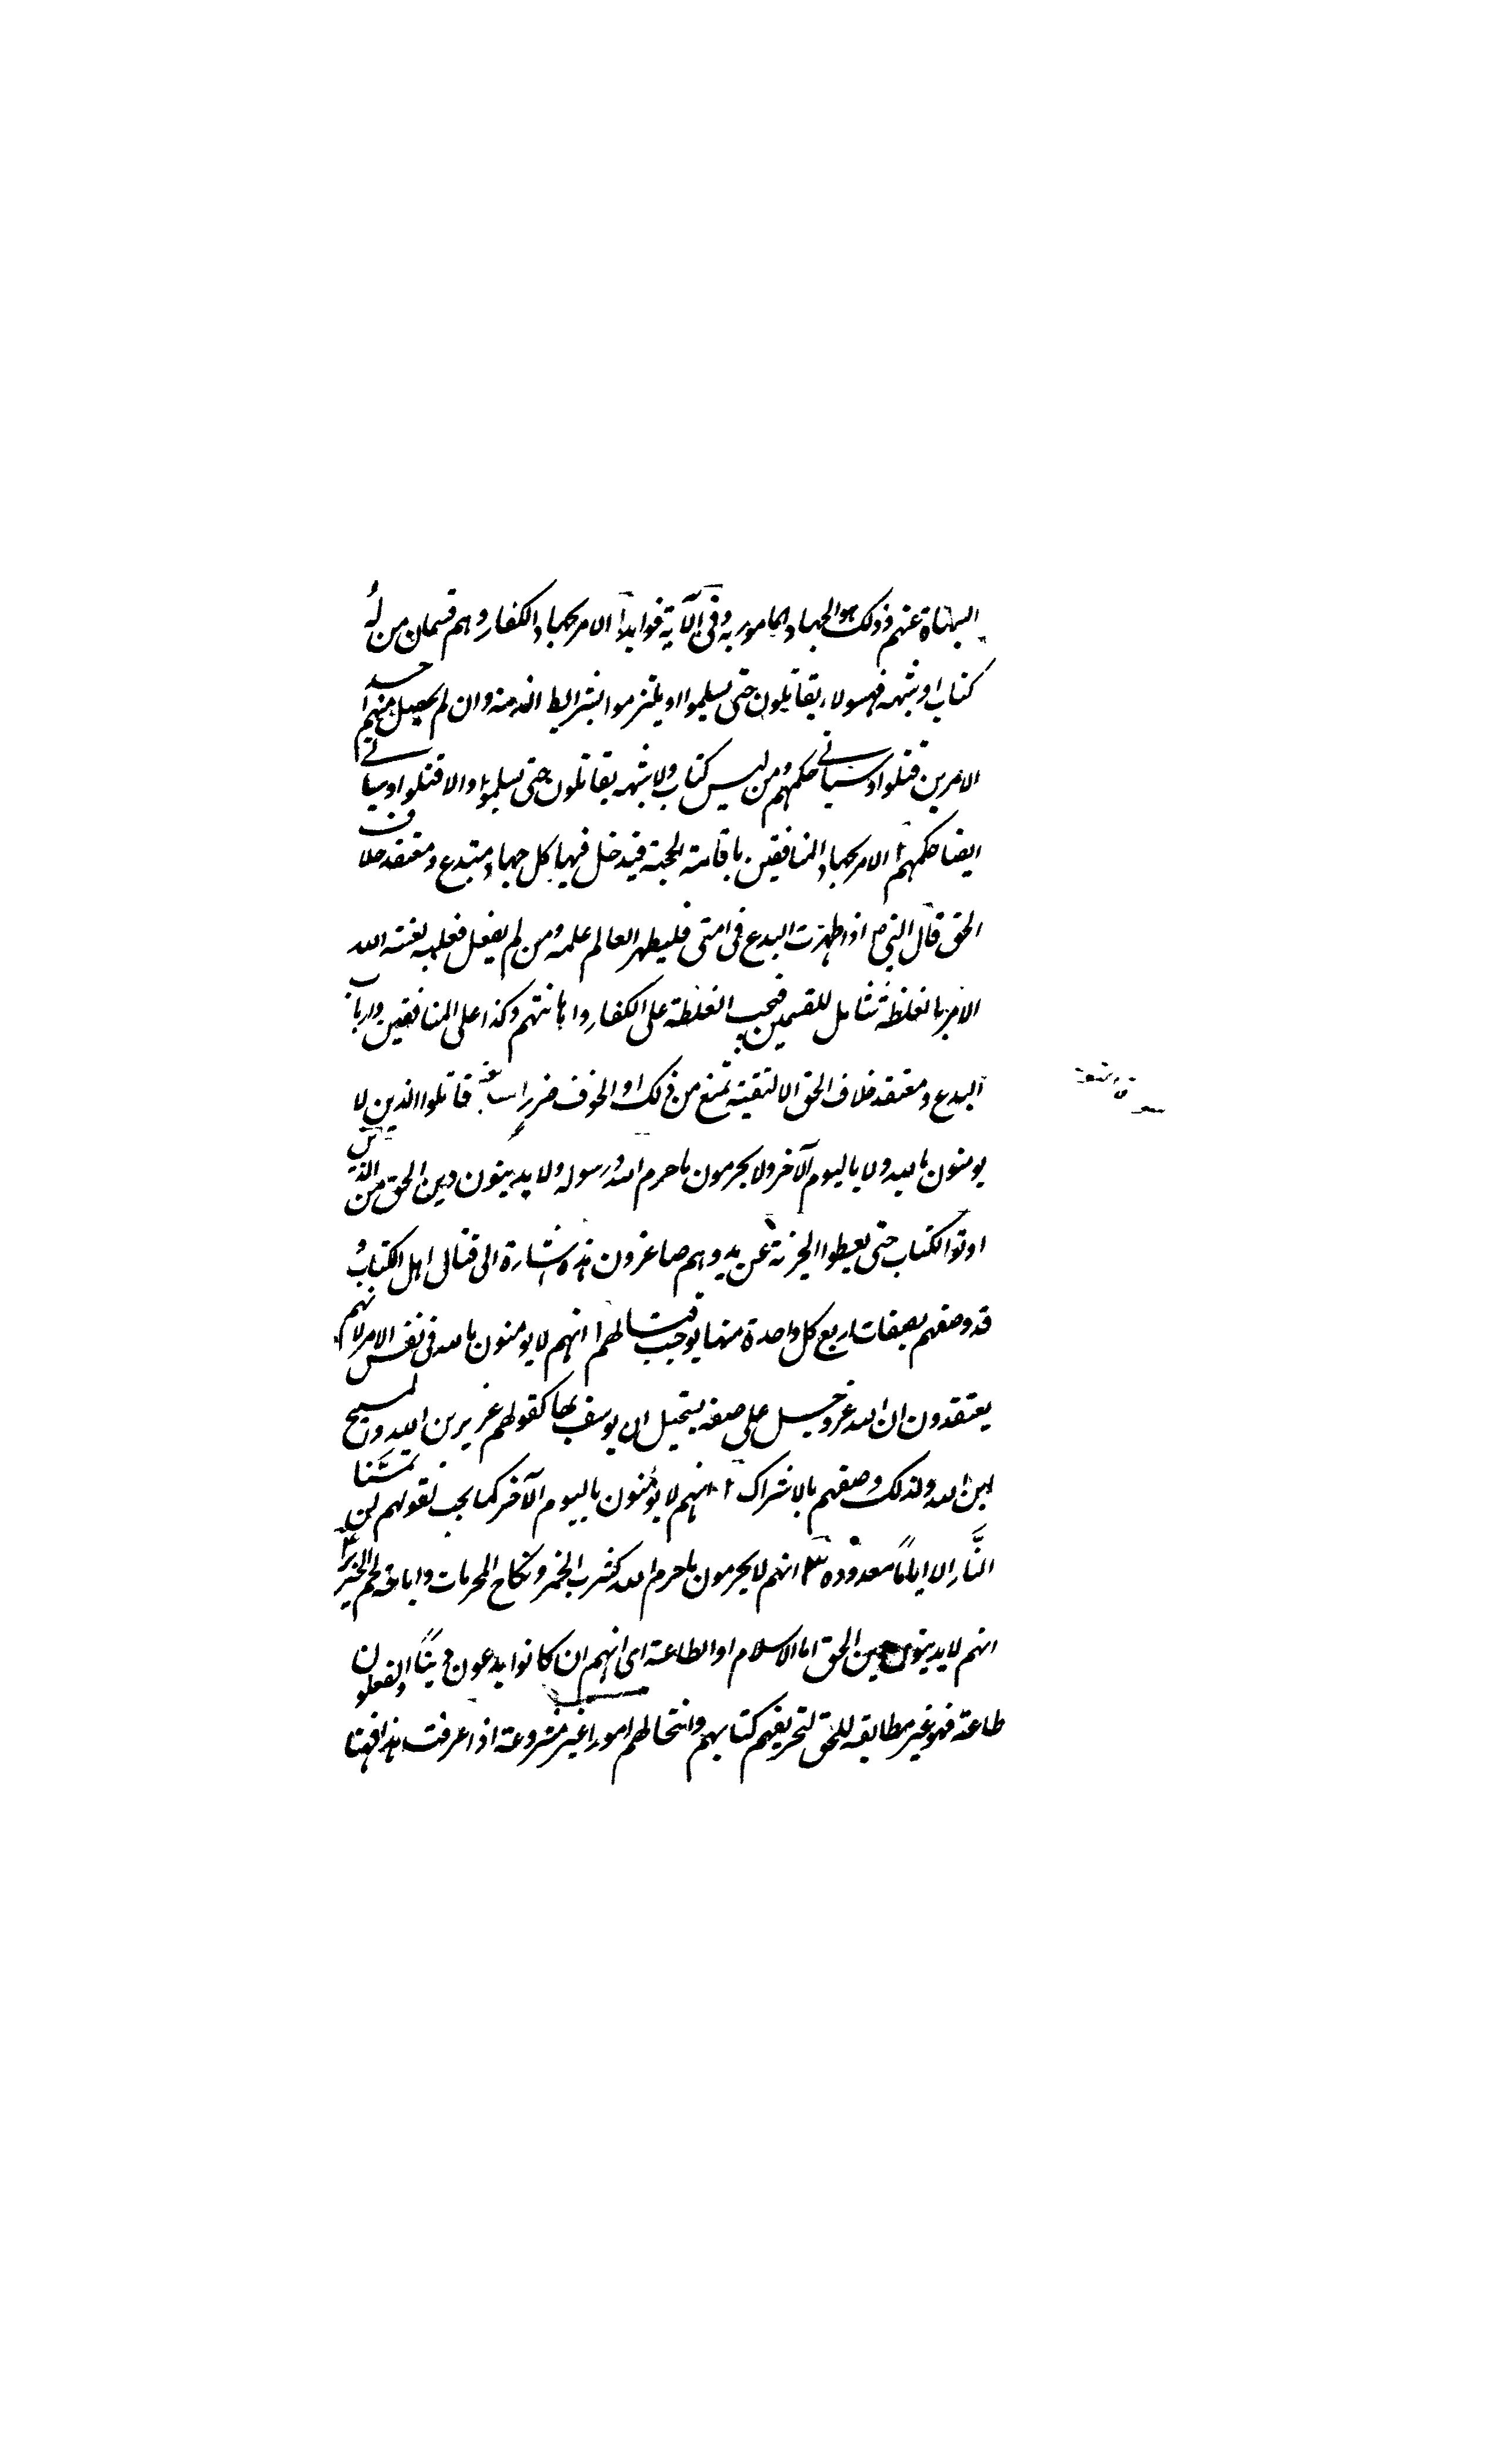 المباهاة عنهم وذلك هو الجهاد المامور به وفى الآية فوايد ا الامر بجهاد الكفار وهم قسمان من له
كتاب او شبهه فهولاء يقاتلون حتى يسلموا او يلتزموا بشرايط الذمة وان لم يحصل منهم احد
الامرين قتلوا وسياتى حكمهم ومن ليس كتاب ولا شبهه يقاتلون حتى يسلموا والا قتلوا وسياتى
ايضا حكمهم ٢ الامر بجهاد المنافقين باقامة الحجة فيدخل فيها كل جهاد مبتدع ومعتقد خلاف
الحق قال النبى ص اذا ظهرت البدع فى امتى فليظهر العالم علمه ومن لم يفعل فعليه لعنة الله
الامر بالغلظة شامل للقسمين فيجب الغلظة على الكفار واهانتهم وكذا على المنافقين وارباب
البدع ومعتقد خلاف الحق الا لتقية تمنع من ذلك او الخوف ضرر قاتلوا الذين لا
يومنون بالله ولا باليوم الآخر ولا يحرمون ما حرم الله ورسوله ولا يدينون دين الحق من الذين
اوتوا الكتاب حتى يعطوا الجزية عن يد وهم صاغرون هذه اشارة الى قتال اهل الكتاب و
قد وصفهم بصفات اربع كل واحدة منها يوجب قتالهم ا انهم لا يومنون بالله فى نفس الامر لانهم
يعتقدون ان الله عز وجل على صفة يستحيل ان يوصف بها كقولهم عزير بن الله والمسيح
ابن الله ولذلك وصفهم بالاشراك ٢ انهم لا يؤمنون باليوم الآخر كما يجب لقولهم لن تمسَّنا
النَّار الا اياماً معدوده ٣ انهم لا يحرمون ما حرم الله كشرب الخمر ونكاح المحرمات واباحة لحم الخنزير ٤
انهم لا يدينون دين الحق اما الاسلام او الطاعة اى انهم ان كانوا يدعون ديناً ويفعلون
طاعة فهو غير مطابقه للحق لتحريفهم كتابهم وانتحالهم امورا غير مشروعة اذا عرفت هذا فهنا